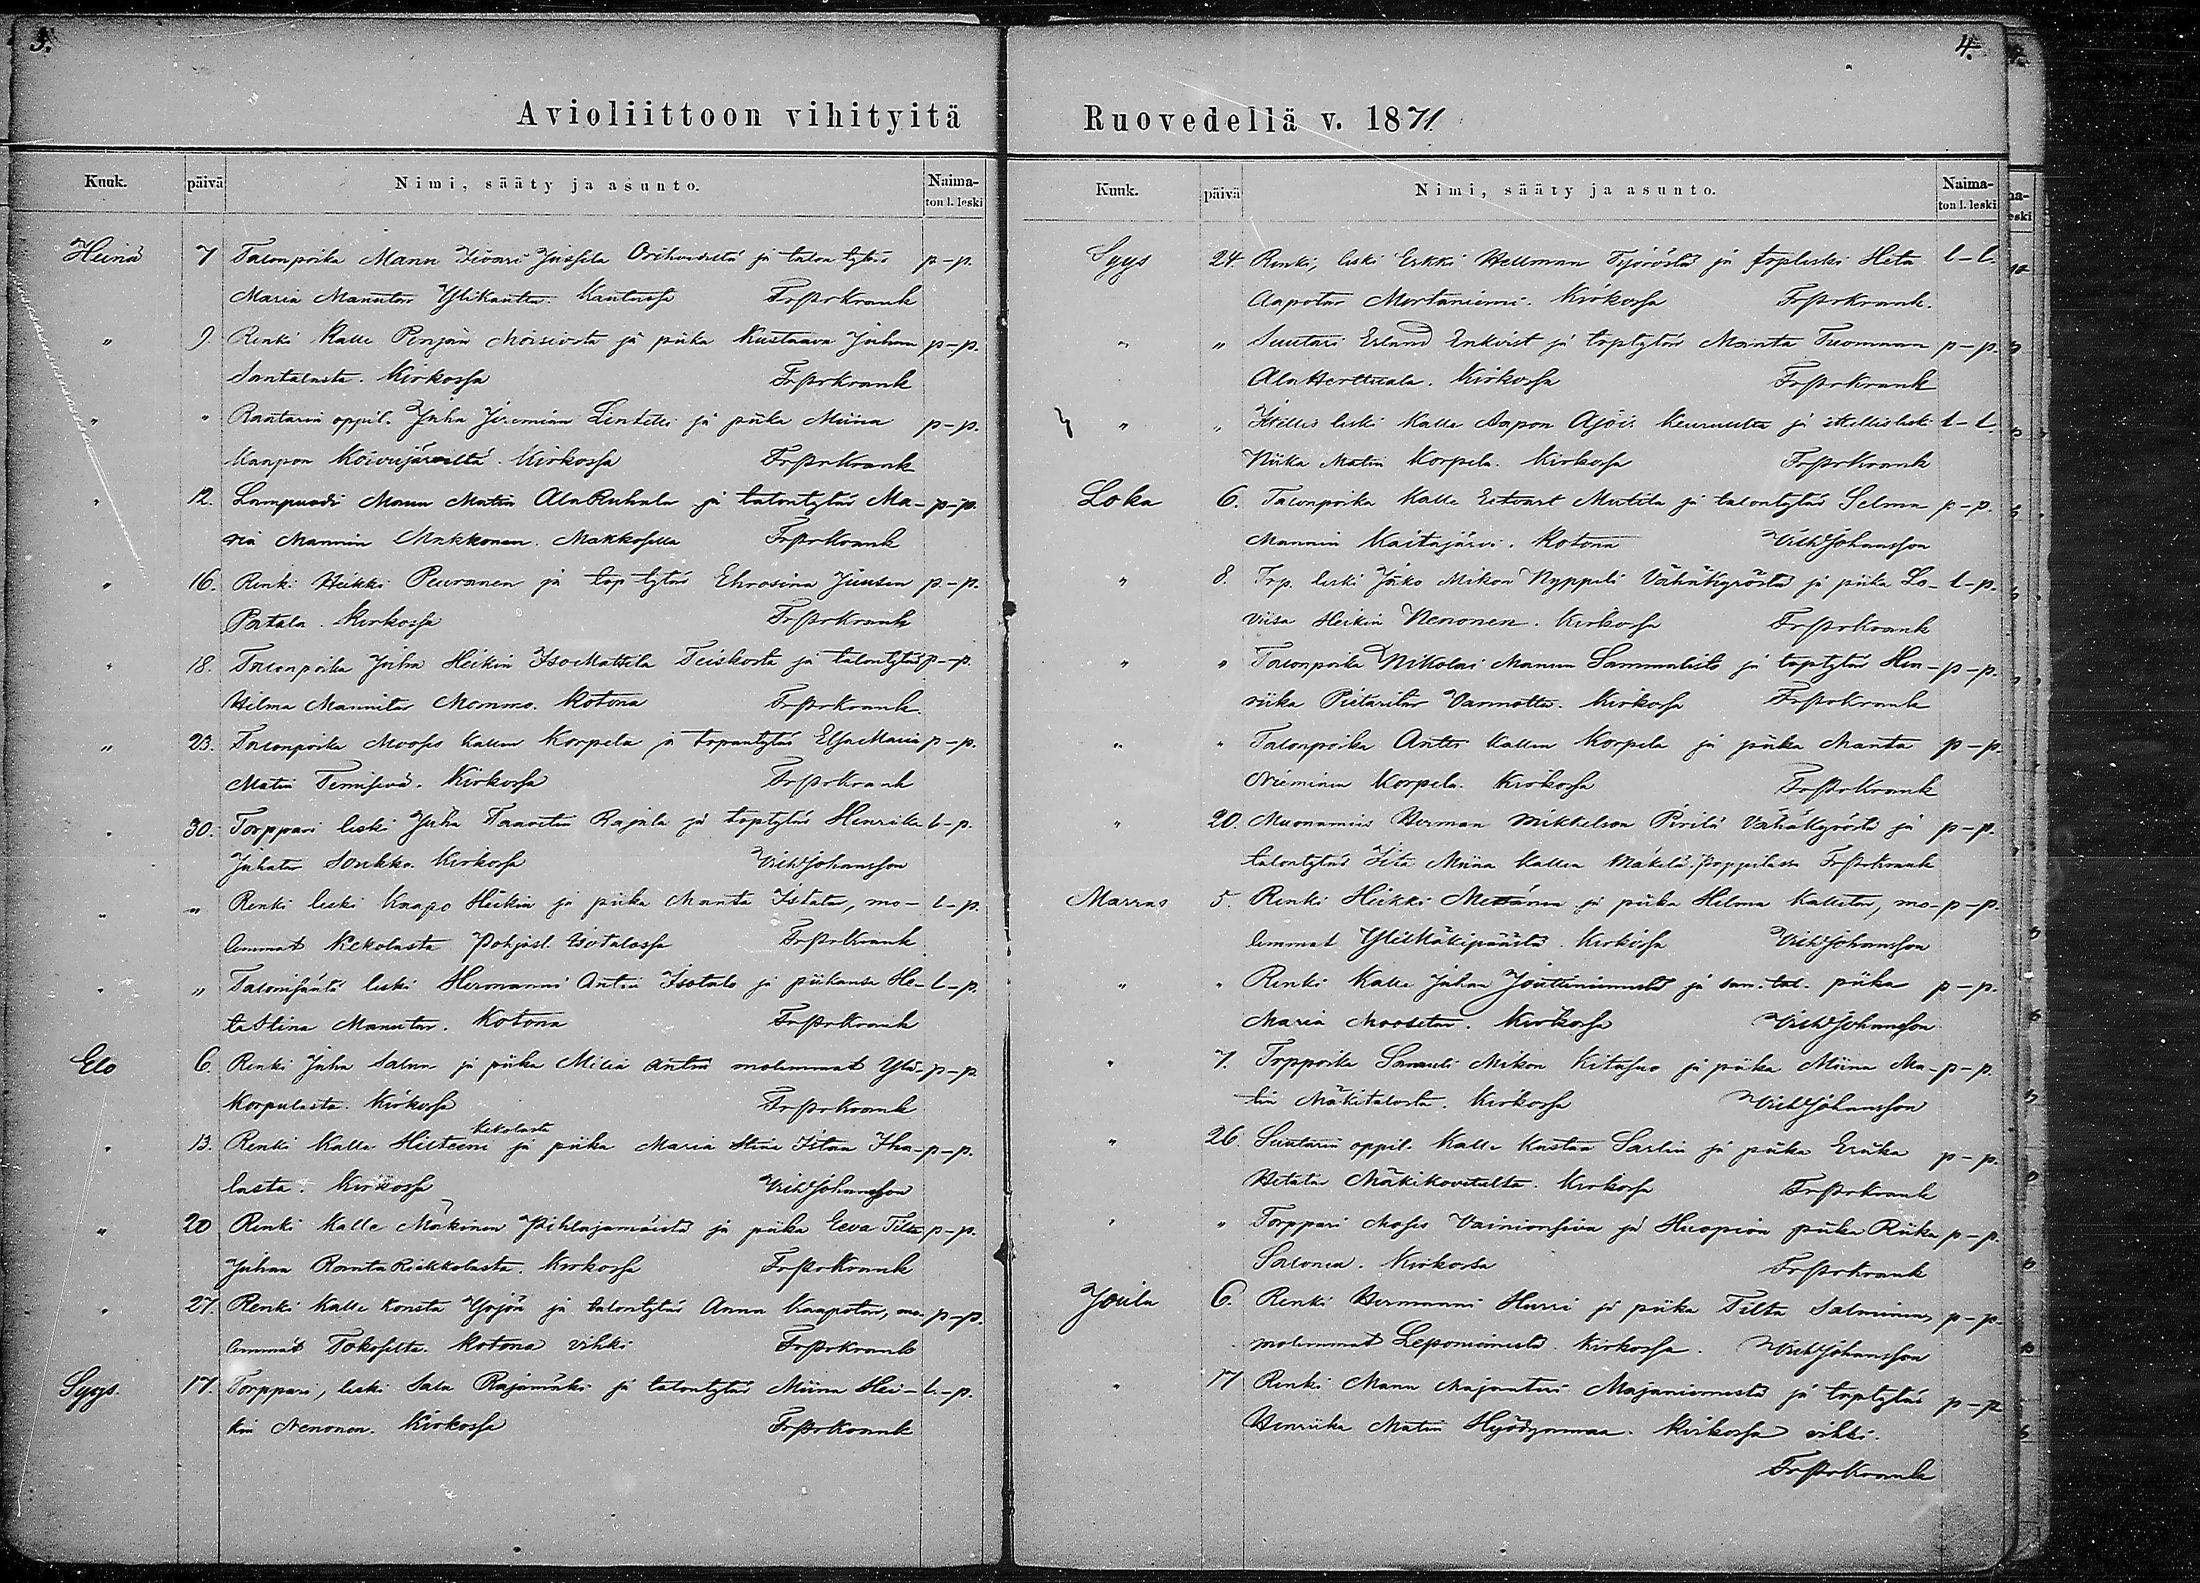 3.
Avioliittoon vihityitä
Kuuk. päivä Nimi, sääty ja asunto. Naimaton l. leski
Heinä 7 Talonpoika Manu Iivari Jussila Orihvedeltä ja talon tytär p-p.
Maria Manutar Ylikautta. Kautussa FrPrKrank
" 9. Renki Kalle Penjän ja piika Kustaava Juhan p-p.
Santalasta. Kirkossa FrPrKrank
" " Räätärin oppil. Juha Jeremian Lindelli ja piika Miina p-p.
Kaapon Koivujärveltä. Kirkossa FrPrKrank
" 12. Lampuodi Manu Matin AlaRuhala ja talontytär Ma- p-p.
ria Mannin Makkonen. Makkosella FrPrKrank
" 16. Renki Heikki Peuranen ja torp tytär Ehrosina Juusen p-p.
Patala. Kirkossa FrPrKrank
" 18. Talonpoika Juha Heikin IsoMattila Teiskosta ja talontytär p-p.
Hilma Mannitar Mommo. Kotona FrPrKrank.
" 23. Talonpoika Mooses Kallen Korpela ja torpantytär ElsaMaria p-p.
Matin Temisevä. Kirkossa FrPrKrank
" 30. Torppari leski Juha Taavetin Rajala ja torptytär Henrika l-p.
Juhatar Soukko. Kirkossa VilhJohansson
" " Renki leski Kaapo Heikin ja piika Manta Iitata, mo- l-p.
lemmat Kekolasta Pohjasl. Isotalossa FrPrKrank
" " Talonisäntä leski Hermanni Antin Isotalo ja piikansa He- l-p.
taStina Manutar. Kotona FrPrKrank
Elo 6. Renki Juha Salun ja piika Milia Antin molemmat Yli- p-p.
Korpulasta. Kirkossa FrPrKrank
Kekolasta
" 13. Renki Kalle Hilteeni ja piika Maria Stina Iitan Iha- p-p.
lasta. Kirkossa VilhJohansson
" 20 Renki Kalle Mäkinen Pihlajamäistä ja piika Eeva Tilta p-p.
Juhan RantaRiekkolasta. Kirkossa FrPrKrank
" 27. Renki Kalle Konsta Yrjön ja talontytär Anna Kaapotar, mo- p-p.
lemmat Tokoselta. Kotona vihki FrPrKrank
Syys. 17. Torppari, leski Salu Rajamäki ja talontytär Miina Hei- l-p.
kin Nenonen. Kirkossa FrPrKrank
4.
Ruovedellä v. 1871.
Kuuk. päivä Nimi, sääty ja asunto. Naimaton l. leski
Syys 24. Renki, leski Erkki Hellman ja torpleski Heta l-l.
Aapotar Mertaniemi. Kirkossa FrPrKrank.
" " Suutari Erland Enkvist ja torptytär Manta Tuomaan p-p.
AlaHerttuala. Kirkossa FrPrKrank
" " Itsellis leski Kalle Aapon Keuruulta ja itsellisleski l-l.
Niika Matin Korpela. Kirkossa FrPrKrank
Loka 6. Talonpoika Kalle Eetvart Mutila ja talontytär Selma p-p.
Mannin Kaitajärvi. Kotona VilhJohansson
" 8. Trp. leski Jako Mikon Nyppeli Vähäkyröstä ja piika Lo- l-p.
viisa Heikin Nenonen. Kirkossa FrPrKrank
" " Talonpoika Nikolai Manun Sammalisto ja torptytär Hen- p-p.
riika Pietaritar Varmatta. Kirkossa FrPrKrank
" " Talonpoika Antti Kallen Korpela ja piika Manta p-p.
Nieminen Korpela. Kirkossa FrPrKrank
" 20. Muonamies Herman Mikkelson Pirilä Vähäkyröstä ja p-p.
talontytär Iita Miina Kallen Mäkelä. Pappilassa FrPrKrank
Marras 5. Renki Heikki Metsänen ja piika Helena Kalletar, mo- p-p.
lemmat YliHäkipäästä. Kirkossa VilhJohansson
" " Renki Kalle Juhan Jouttiniemestä ja sam. tal. piika p-p.
Maria Moosetar. Kirkossa VilhJohansson
" 7. Trppoika Samuli Mikon Kitusuo ja piika Miina Ma- p-p.
tin Mäkitalosta. Kirkossa VilhJohansson
" 26. Suutarin oppil. Kalle Kustaa Sarlin ja piika Eriika p-p.
Hetatar Mäkikovitulta. Kirkossa FrPrKrank
" " Torppari Moses Vainionsivu ja Huopion piika Riika p-p.
Salonen. Kirkossa FrPrKrank
Joulu 6. Renki Hermanni Hurri ja piika Tilta Salminen, p-p.
molemmat Leponiemestä. Kirkossa. VilhJohansson
" 17 Renki Manu Majanteri Majaniemestä ja torptytär p-p
Henriika Matin Hyödynmaa. Kirkossa vihki.
FrPrKrank